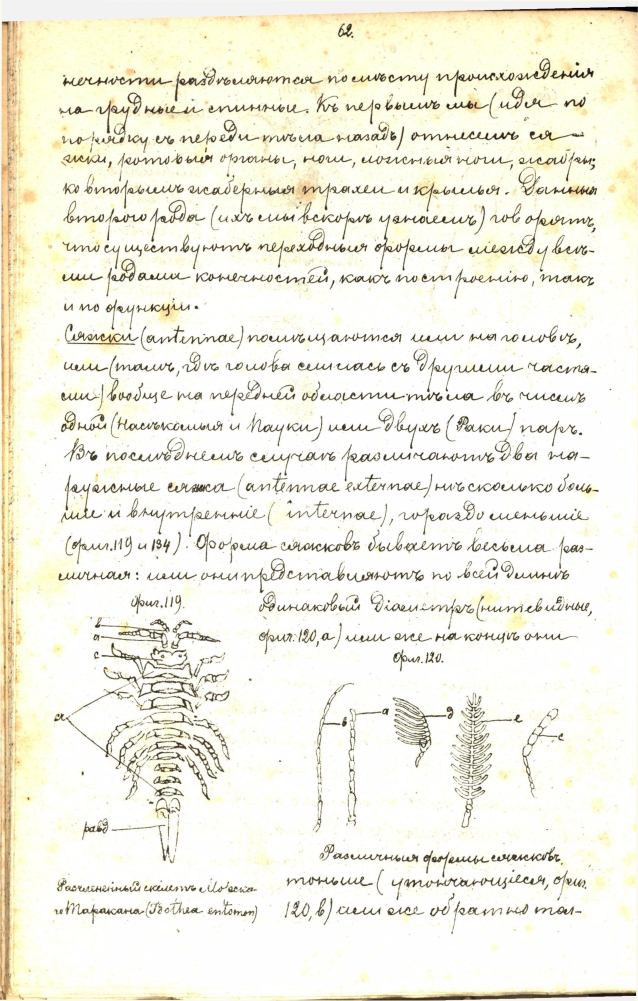 62.
нечности раздѣляются по мѣсту происхожденія
на грудные и спинные. Къ первымъ мы (идя по
порядку съ переди тѣла назадъ) отнесемъ ся-
жки, ротовыя органы, ноги, ложныя ноги, жабры;
ко вторымъ жаберныя трахеи и крылья. Данныя
второго рода (ихъ мы вскорѣ узнаемъ) говорятъ,
что существуютъ переходныя формы между всѣ-
ми родами конечностей, какъ по строенію, такъ
и по функціи.
Сяжки (antennae) помѣщаются или на головѣ,
или (тамъ, гдѣ голова слилась съ другими частя-
ми) вообще на передней области тѣла въ числѣ
одной (Насѣкомыя и Пауки) или двухъ (Раки) паръ.
Въ послѣднемъ случаѣ различаютъ два на-
ружные сяжка (antennae externae) нѣсколько боль-
шіе и внутренніе (internae), гораздо меньшіе
(фиг. 119 и 134). Форма сяжковъ бываетъ весьма раз-
личная: или они представляютъ по всей длинѣ
фиг. 119.
одинаковый діаметръ (нитевидные,
фиг. 120, а) или же на концѣ они
фиг. 120.
b
a
c
d
равд
b
a
d
e
c
Различныя формы сяжковъ.
Расчлененный скелетъ Морска-
го Таракана (Idothea entomon)
тоньше (утончающіеся, фиг.
120, b) или же обратно тол-